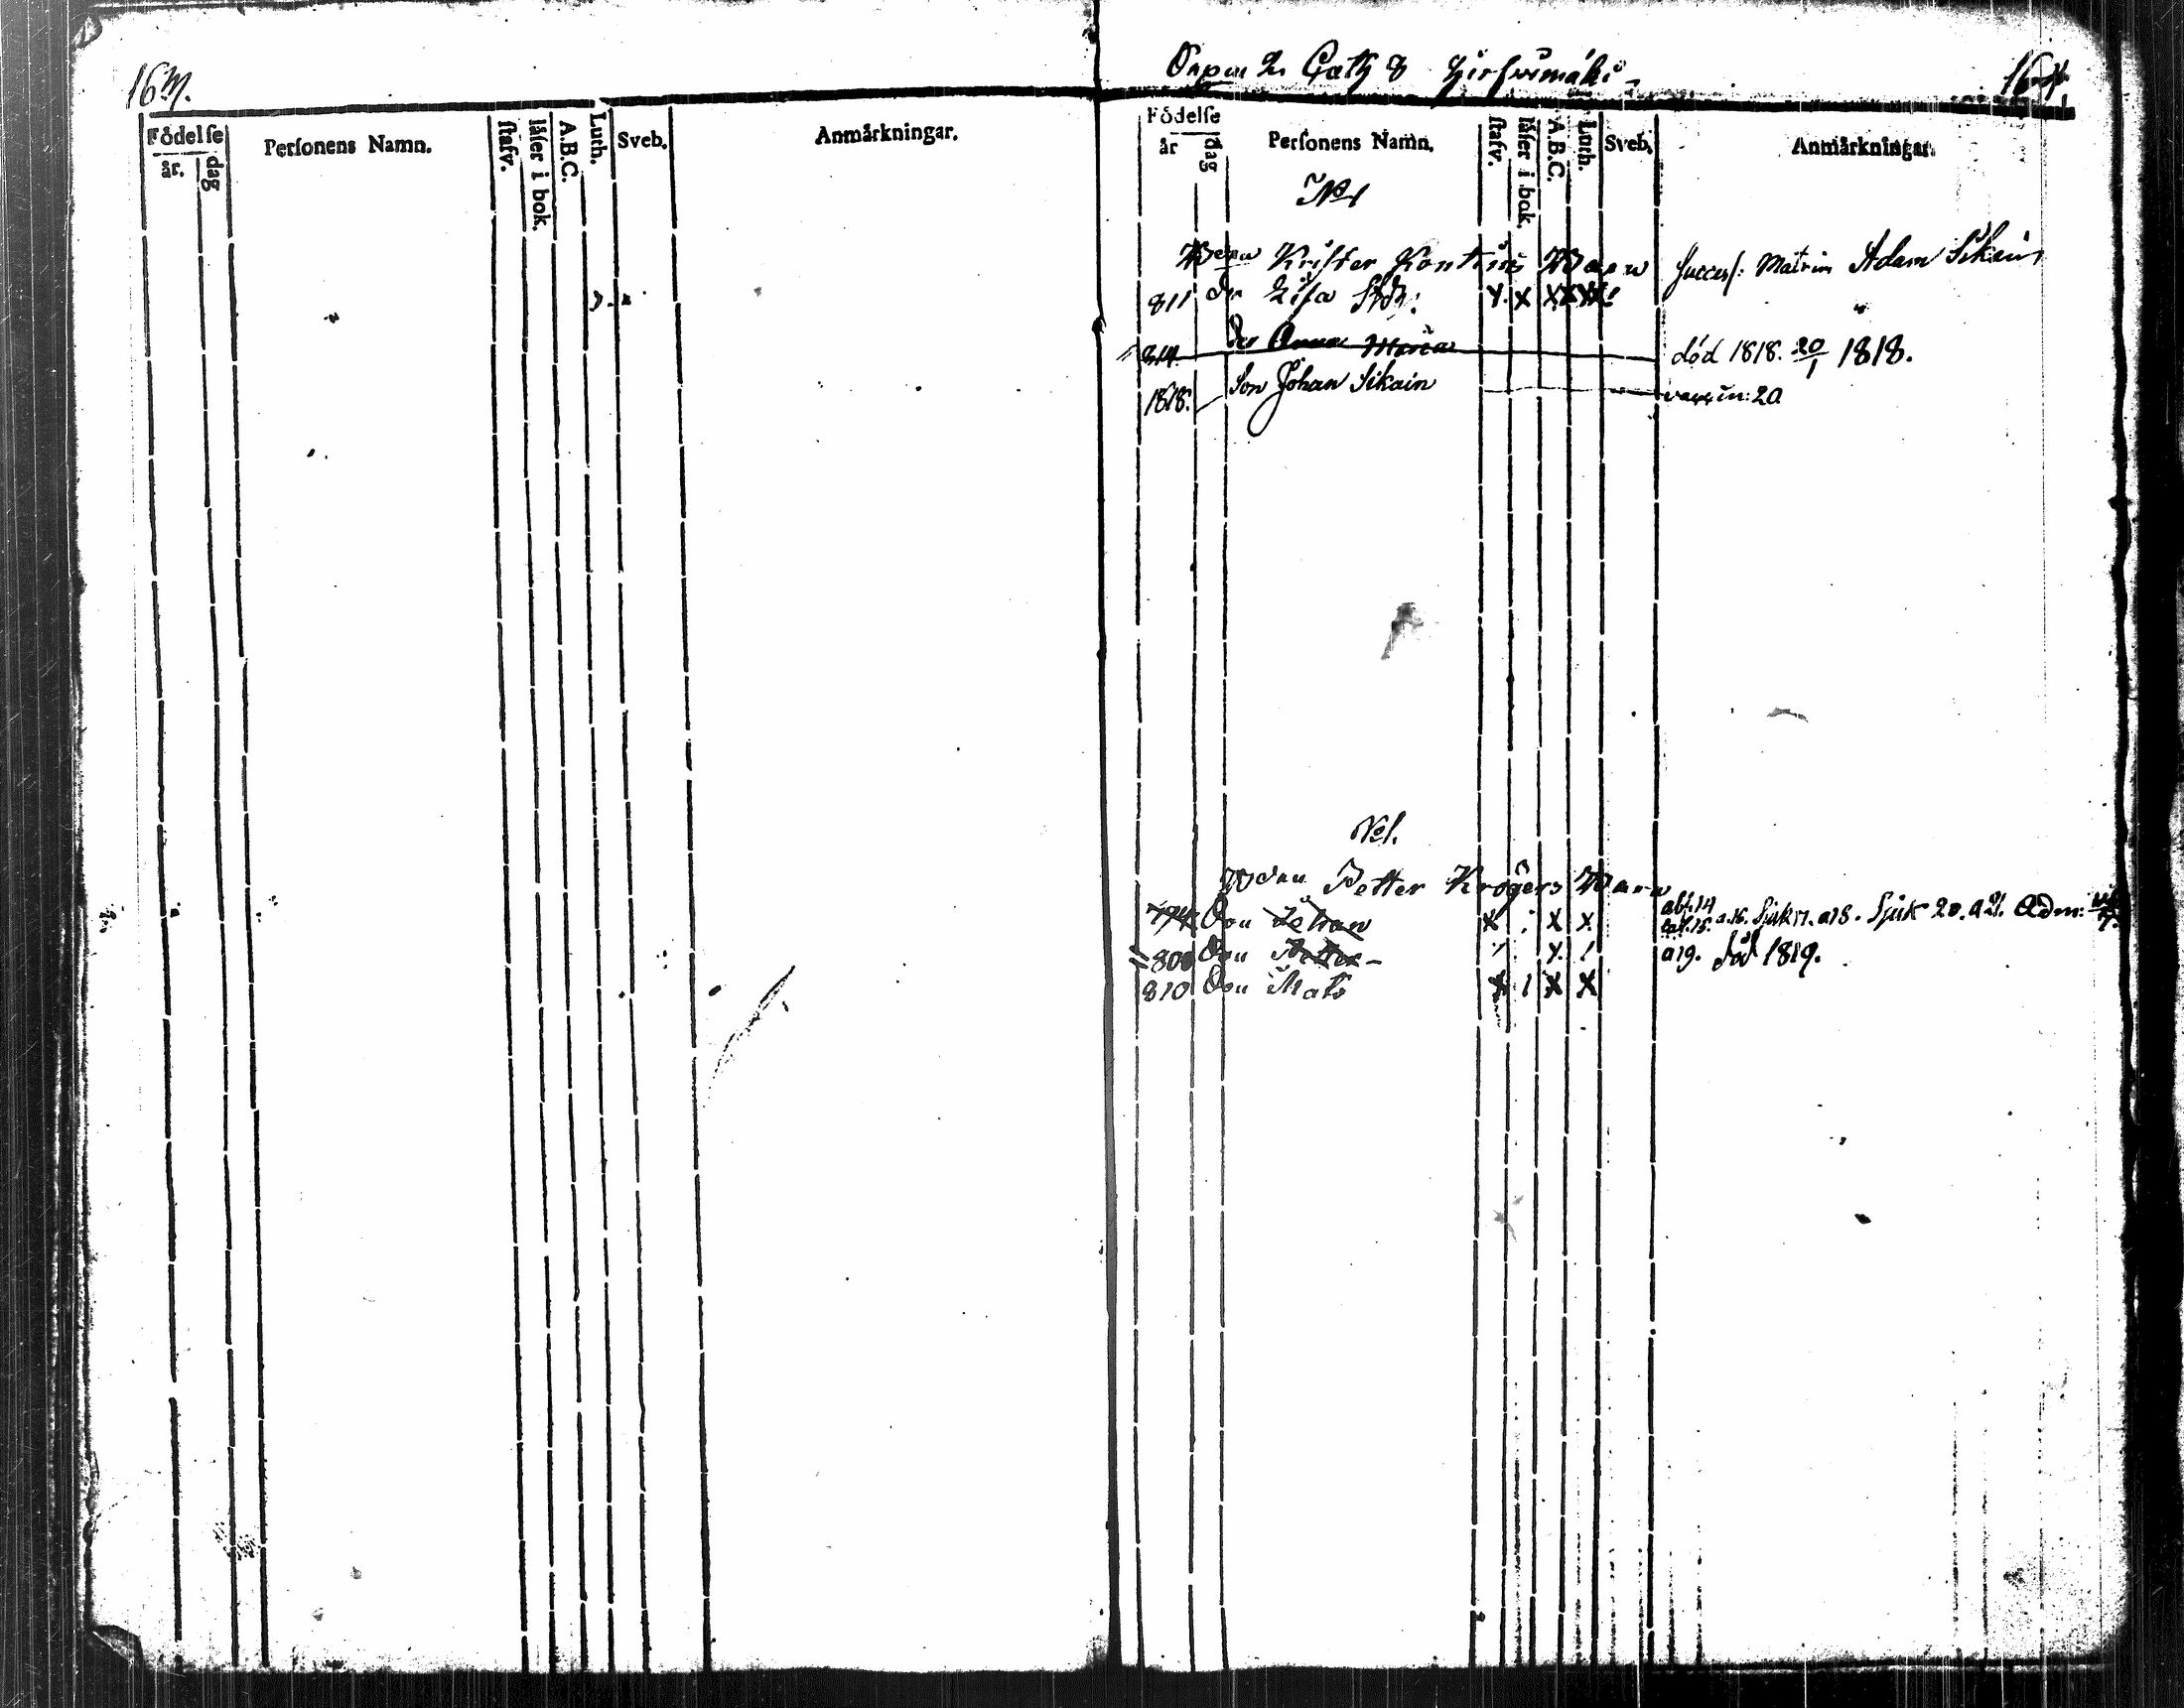 16
Födelse
år. dag
Personens Namn.
stafv.
låser i bok.
A.B.C.
Luth.
Sveb.
Anmårkningar.
16
Födelse
år dag
Personens Namn.
stafv.
låser i bok.
A.B.C.
Luth.
Sveb.
Anmårkningar.
No 1
Krister Kontius Barn
Success: Matrim Adam Sikain
811 dr Lisa
x x
814 dr Anna Maria död 1818. 20/1 1818.
1818. Son Johan Sikain vaccin: 20
No 1.
Petter Krögers Barn
794 Son Johan x x x abs. 14 abs. 15. a. 16. Sjuk 17. a18. Sjuk 20. a 21. Adm:
800 Son Petter a19. död 1819.
810 Son Mats x 1 x x